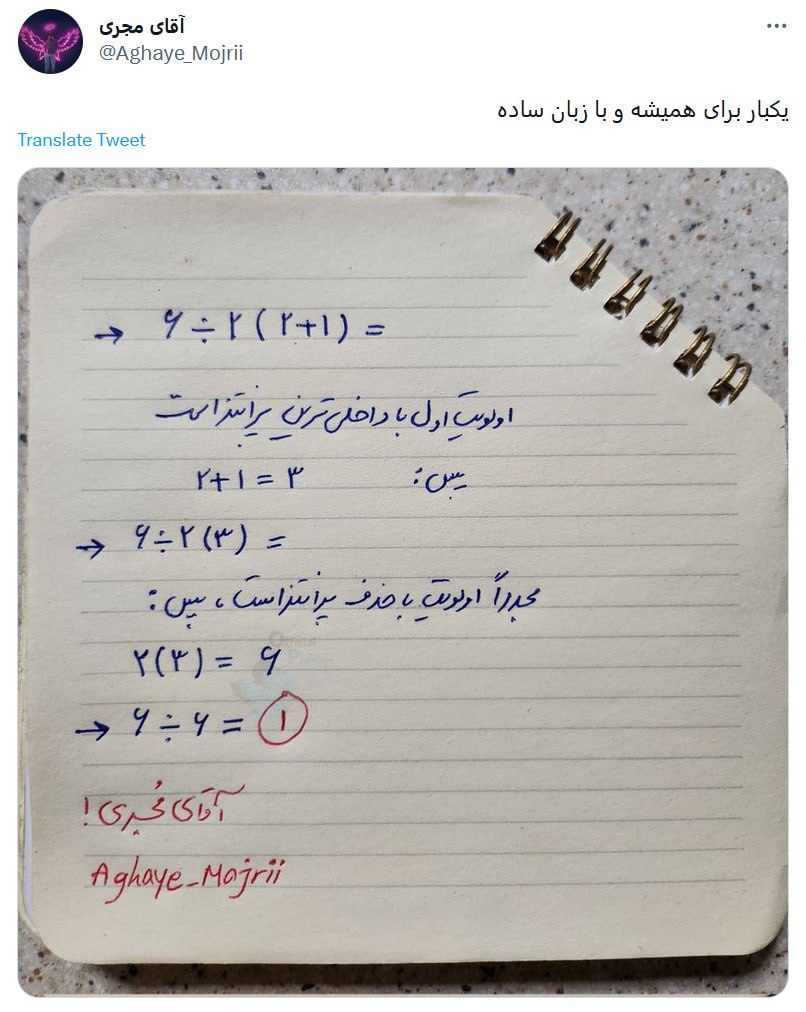 آقای مجری
@Aghaye_Mojrii
یکبار برای همیشه و با زبان ساده
Translate Tweet
→ ۶ ÷ ۲ ( ۲+۱ ) =
اولویتِ اول با داخلی‌ترین پرانتز است
پس :
۲+۱ = ۳
→ ۶ ÷ ۲ (۳) =
مجدداً اولویت با حذف پرانتز است ، پس :
۲(۳) = ۶
→ ۶ ÷ ۶ = ۱
آقای مُجری !
Aghaye_Mojrii
Official